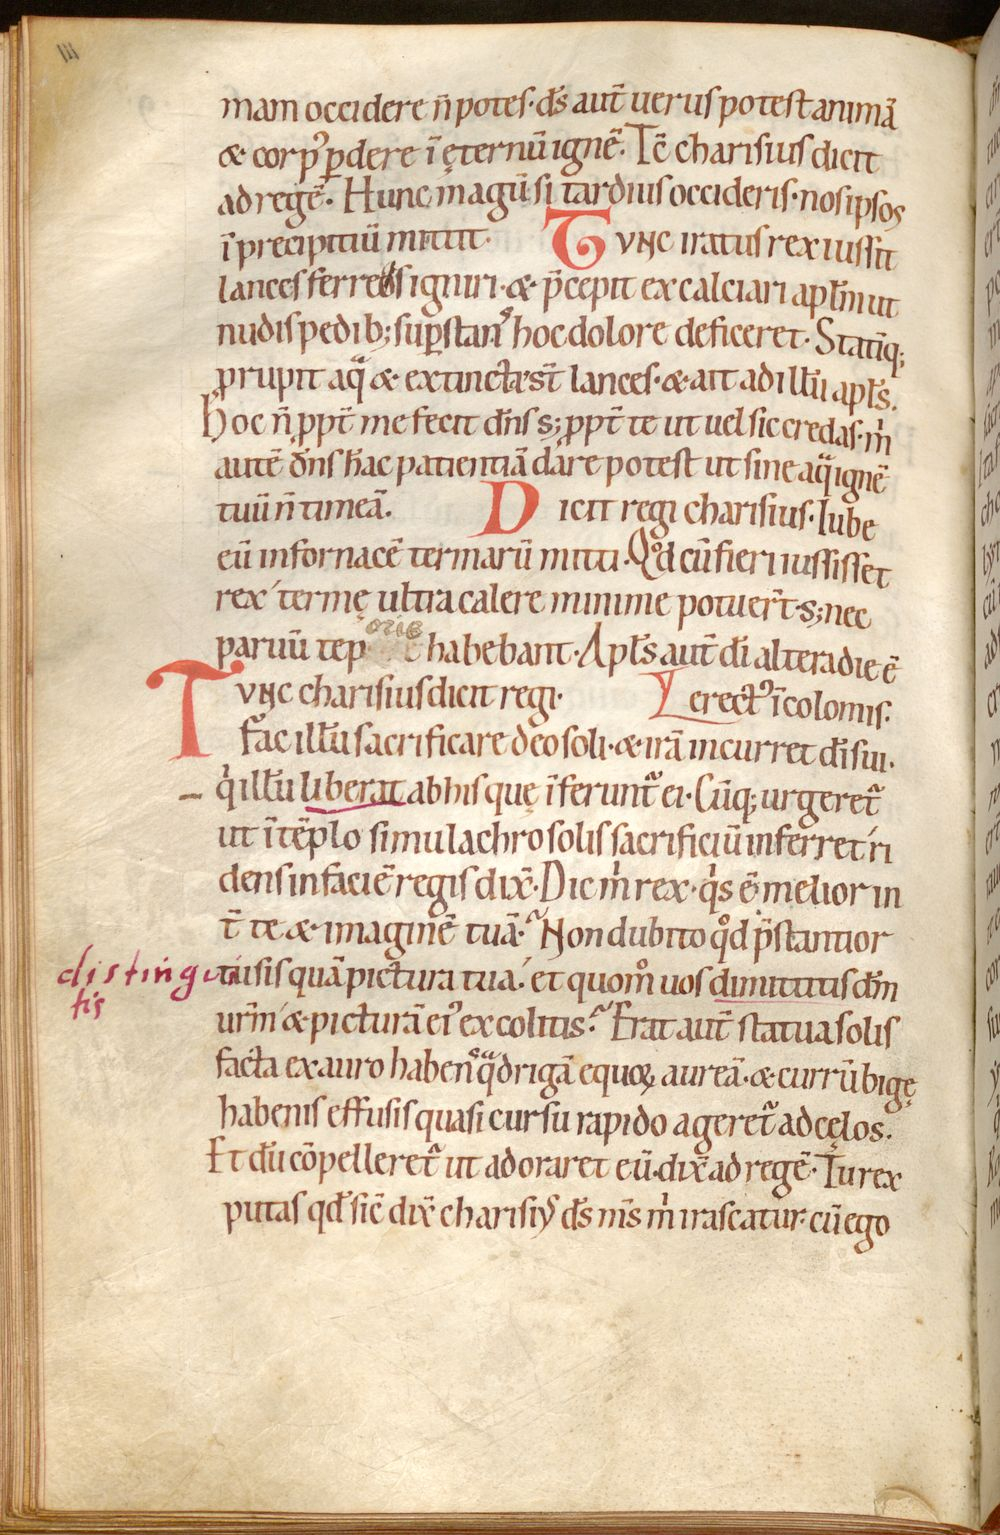 III
mam occidere n̄ potes· ds̄ aut̄ uerus potest animā
& corpꝰ ꝑdere ī ęternū ignē. Tc̄ charisius dicit
ad regē. Hunc magū si tardius occideris· nos ipsos
ī precipitiū mittit. Tunc iratus rex iussit
lances ferreas igniri· & p̄cepit excalciari apl̄m ut
nudis pedib; suꝑstanˢ hoc dolore deficeret. Statīq;
prupit aqͣ & extinctę st̄ lances· & ait ad illū apl̄s.
Hoc n̄ ꝓpt̄ me fecit dn̄s s; ꝓpt̄ te ut uel sic credas· m̍
autē dn̄s hāc patientiā dare potest ut sine aqͣ ignē
tuū n̄ timeā. Dicit regi charisius. Iube
eū in fornacē termarū mitti. Qd̊ cū fieri iussisset
rex termę ultra calere minime potuer̄t· s; nec
paruū tep oris habebant. Apl̄s aut̄ dī altera die ē
Tunc charisius dicit regi· erectꝰ ī colomis.
fac illū sacrificare deo soli· & irā incurret dī sui·
q̍ illū liberat ab his quę īferunt᷑ ei. Cūq; urgeret᷑
ut ī tēplo simulachro solis sacrificiū inferret ri
dens in faciē regis dix̄. Dic m̍ rex· q̍s ē melior in
t̄ te & imaginē tuā. Non dubito qd̊ p̄stantior
tu sis quā pictura tua· et quom̊ uos dimittitis dm̄
ur̄m & picturā eiꝰ excolitis. Erat aut̄ statua solis
facta ex auro habenˢ qͣdrigā equoꝝ aureā· & currū bigę
habenis effusis quasi cursu rapido ageret᷑ ad cęlos.
Et dū cōpelleret᷑ ut adoraret eū· dix̄ ad regē. Tu rex
putas qd̄ sic̄ dix̄ charisiꝰ ds̄ ms̄ m̍ irascatur· cū ego
distingui
tis